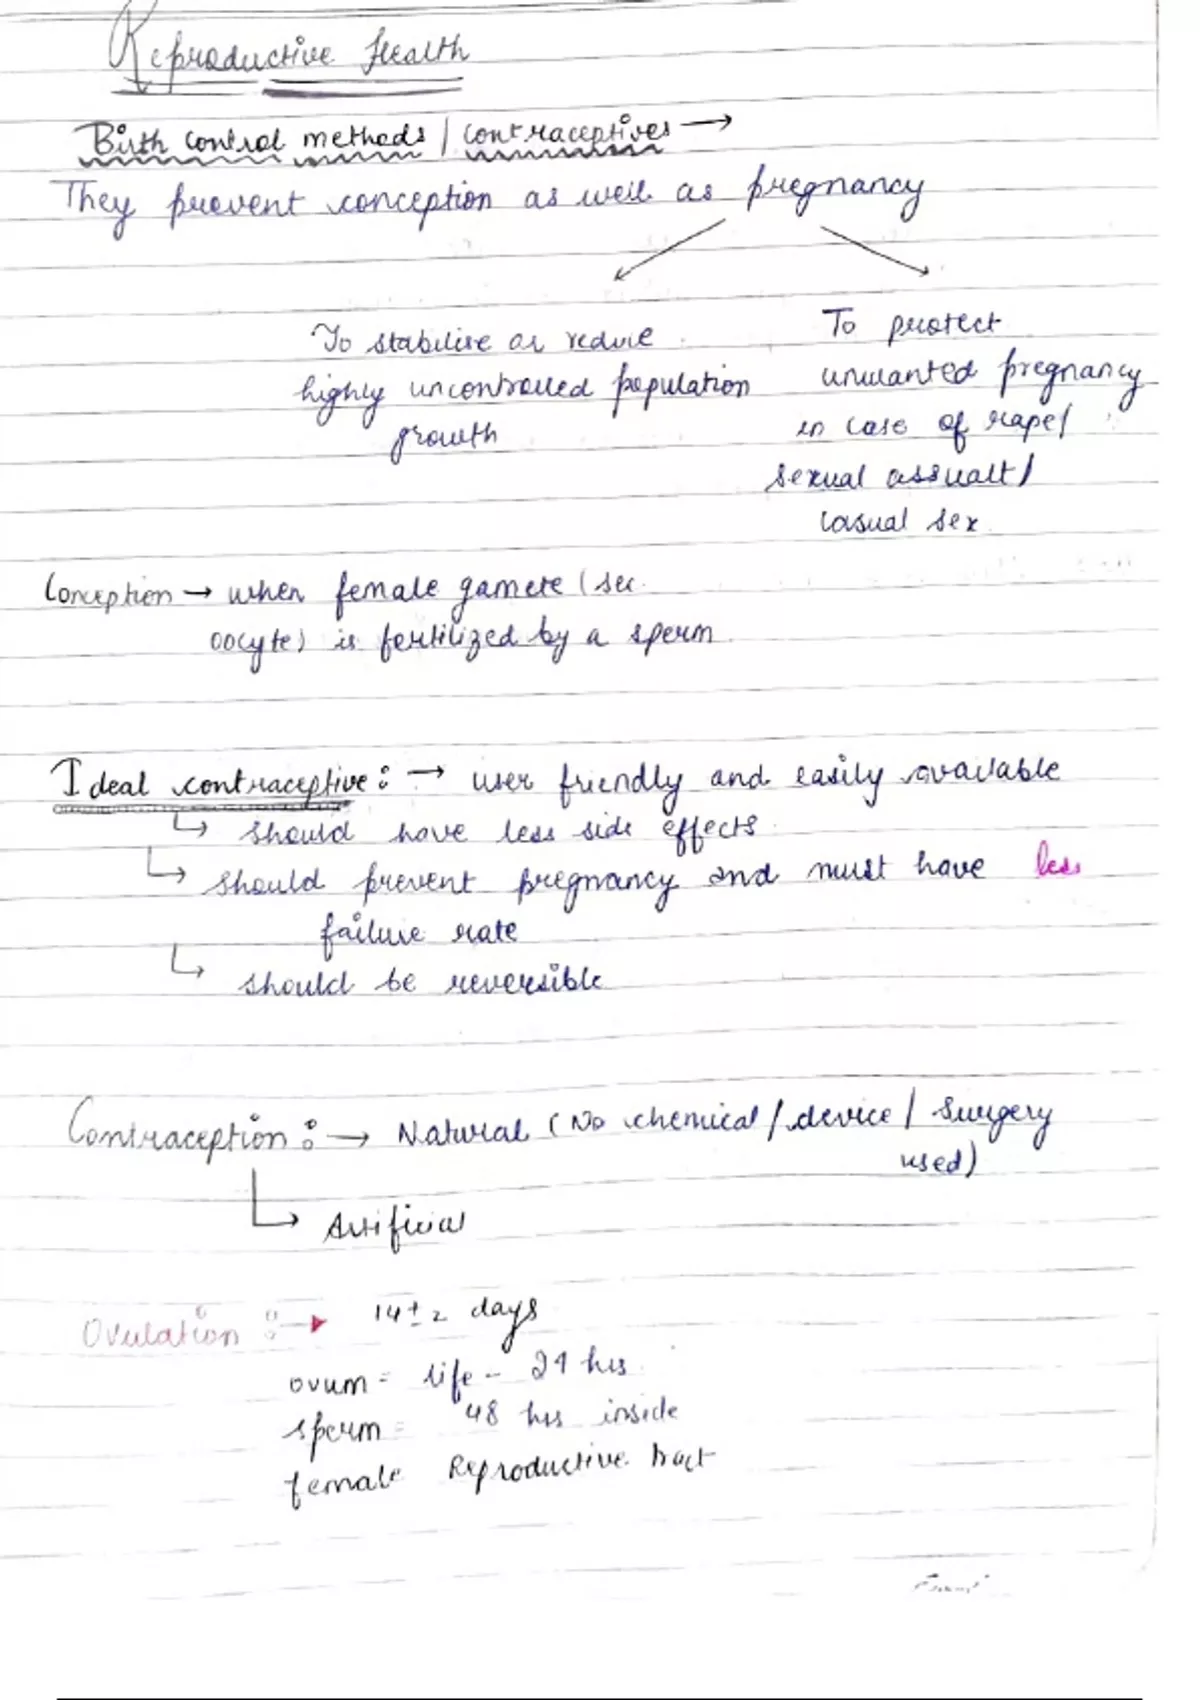 Reproductive Health
Birth control methods / contraceptives →
They prevent conception as well as pregnancy
To stabilise or reduce
highly uncontrolled population
growth
To protect
unwanted pregnancy
in case of rape/
sexual assualt/
casual sex
Conception → when female gamete (sec.
oocyte) is fertilized by a sperm.
Ideal contraceptive: → user friendly and easily available
↳ should have less side effects
↳ should prevent pregnancy and must have less
failure rate
↳ should be reversible
Contraception: → Natural (No chemical / device / surgery
used)
↳ Artificial
Ovulation : → 14 ± 2 days
ovum = life - 24 hrs
sperm = 48 hrs inside
female Reproductive tract